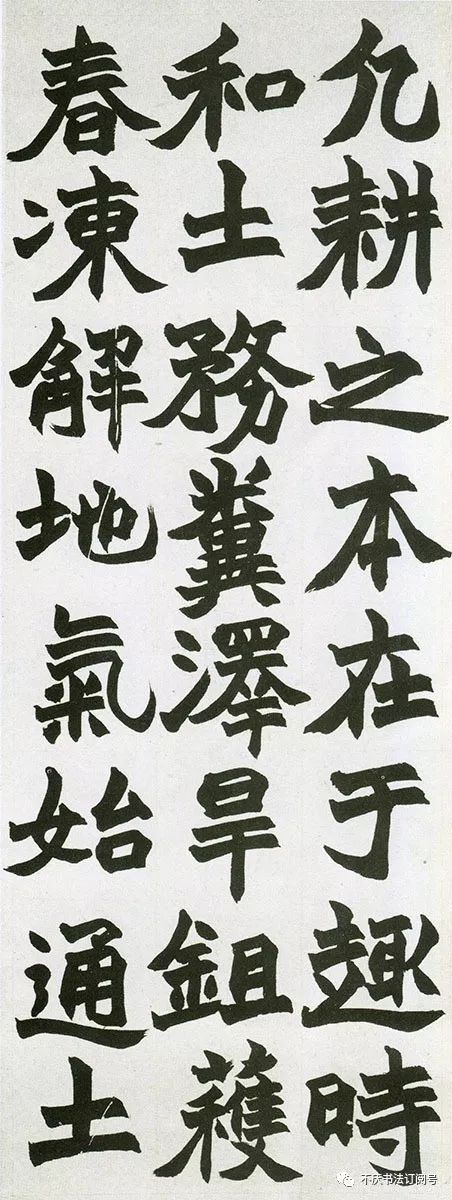 凡耕之本在于趣時
和土務糞澤旱鉏穫
春凍解地氣始通土
不厌书法订阅号